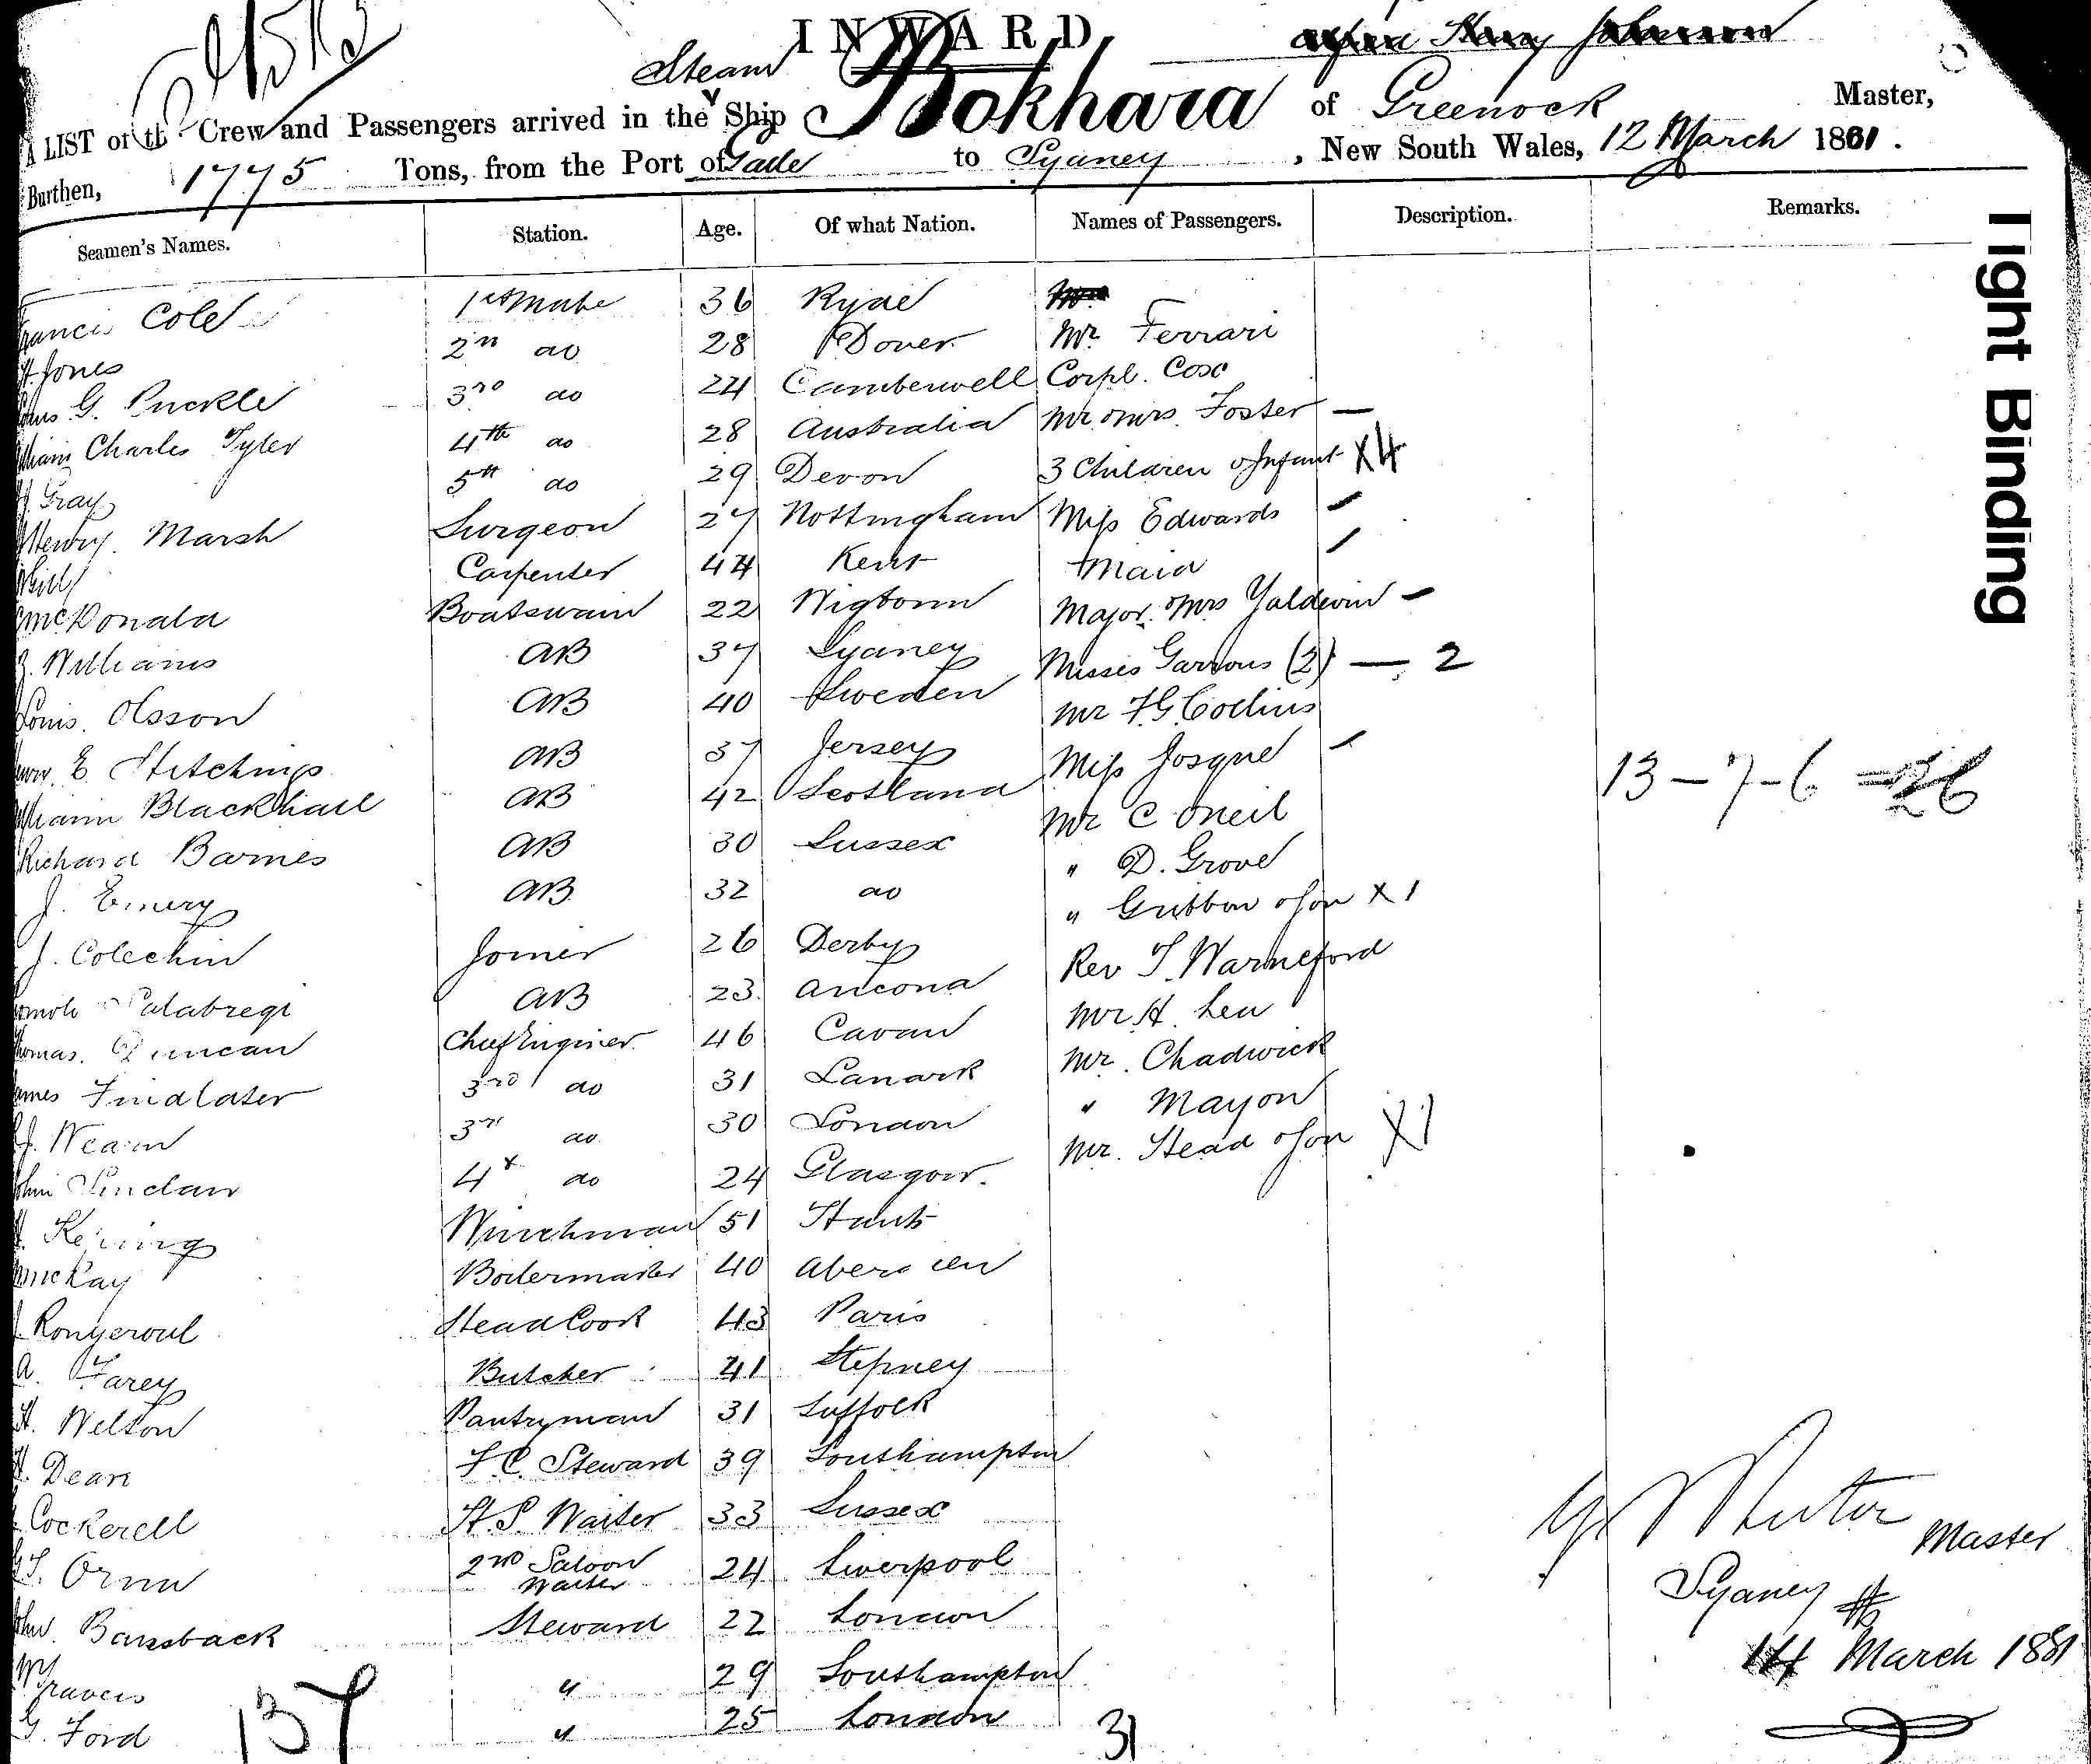 INWARD
Steam
A LIST of the Crew and Passengers arrived in the Ship Bokhara of Greenock Master,
Burthen, 1775 Tons, from the Port of Galle to Sydney, New South Wales, 12 March 1881.
Seamen's Names. Station. Age. Of what Nation. Names of Passengers. Description. Remarks.
Francis Cole 1st Mate 36 Ryde
Jones 2nd do 28 Dover Mr Ferrari
G. Puckle 3rd do 24 Camberwell Corpl. Cox
William Charles Tyler 4th do 28 Australia Mr & Mrs Foster —
Gray 5th do 29 Devon 3 Children & Infant X4
Henry Marsh Surgeon 27 Nottingham Miss Edwards
Carpenter 44 Kent + Maid
McDonald Boatswain 22 Wigtown Major & Mrs Yaldwin
Williams AB 37 Sydney Misses Garrous (2) — 2
Louis Olsson AB 40 Sweden Mr F.G. Collins
E. Stitchings AB 37 Jersey Miss Josque
William Blackhall AB 42 Scotland Mr C Oneil
13 – 7 – 6 = 26
Richard Barnes AB 30 Sussex " D. Grove
J. Emery AB 32 do " Gribbon & Son X 1
J. Colechin Joiner 26 Derby Rev T. Warneford
Calabregi AB 23 Ancona Mr H. Leu
Thomas Duncan Chief Engineer 46 Cavan Mr. Chadwick
James Findlater 3rd do 31 Lanark " Mayon
Wearn 3rd do 30 London Mr. Stead & Son X1
John Sinclair 4th do 24 Glasgow
Winchman 51 Hants
McKay Boilermaker 40 Aberdeen
Head Cook 43 Paris
A. Farey Butcher 41 Stepney
H. Welton Pantryman 31 Suffolk
H. Dean F.C. Steward 39 Southampton
Cockerell H.S. Waiter 33 Sussex
Orum 2nd Saloon Waiter 24 Liverpool
John Bansback Steward 22 London
Travers " 29 Southampton
G. Ford " 25 London
137
31
Master
Sydney
14 March 1881
Tight Binding